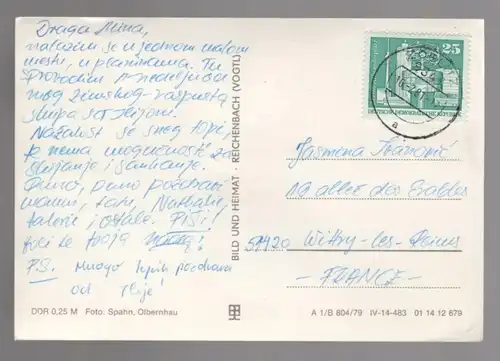 Draga Mina,
nalazim se u jednom malom
mestu, u planinama. Tu
provodim nedelju dana
mog zimskog raspusta
skupa sa Ilijom.
Nažalost se sneg topi,
te nema mogućnosti za
skijanje i sankanje.
Puno, puno pozdrava
mami, tati, Nathalie,
Valerie i ostale. Piši!
tvoja
P.S. Mnogo lepih pozdrava
od Ilije!
DDR 0,25 M Foto: Spahn, Olbernhau
BILD UND HEIMAT · REICHENBACH (VOGTL)
25
DEUTSCHE DEMOKRATISCHE REPUBLIK
a
Jasmina
19 allée des Erables
51420 Witry-les-Reims
- FRANCE -
A 1/B 804/79 IV-14-483 01 14 12 679